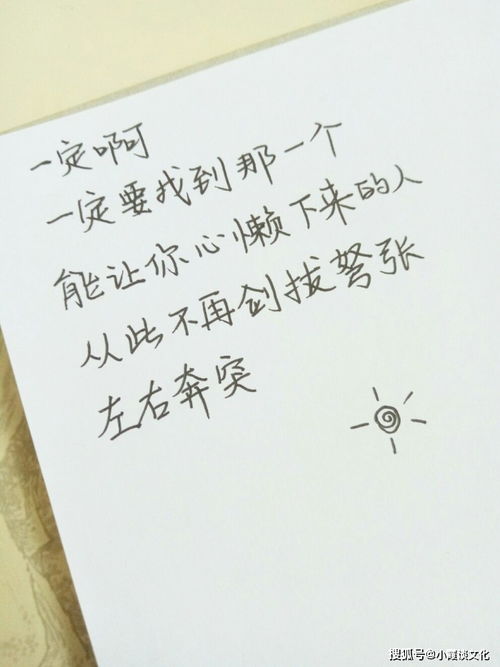 一定啊
一定要找到那一个
能让你心懒下来的人
从此不再剑拔弩张
左右奔突
搜狐号@小霞谈文化